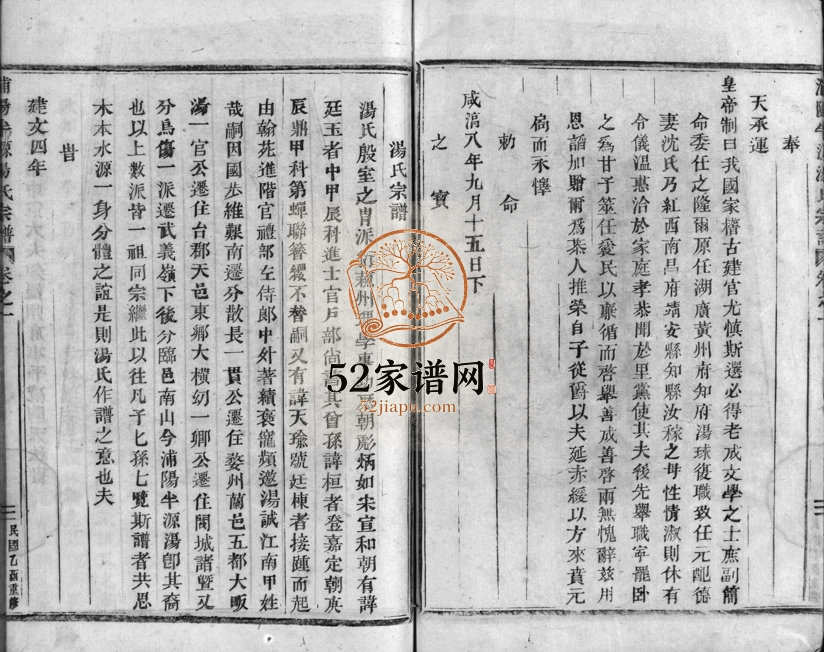 浦陽半源湯氏宗譜 卷之一
奉
天承運
皇帝制曰我國家稽古建官尤慎斯選必得老成文學之士庶副簡
命委任之隆爾原任湖廣黃州府知府湯球復職致任元配德
妻沈氏乃紅西南昌府靖安縣知縣汝稼之母性情淑則休有
令儀溫惠洽於家庭孝恭聞於里黨使其夫後先舉職寧罷卧
之爲甘子筮任愛民以廉循而啓舉善成善啓兩無愧辭玆用
恩誥加贈爾爲恭人推榮自子從爵以夫延赤綬以方來賁元
扃而永懌
咸淳八年九月十五日下
勅命
之寶
湯氏宗譜
湯氏殷室之肖派 蘓州 學 朝彪炳如宋宣和朝有諱
廷玉者中甲辰科進士官戶部尚 其曾孫諱桓者登嘉定朝庚
辰鼎甲科第蟬聯簪纓不替嗣又有諱天瑜號廷棟者接踵而起
由翰苑進階官禮部左侍郎中外著績褒寵頻邀湯誠江南甲姓
哉嗣因國步維艱南遷分散長一貫公遷住婺州蘭邑五都大畈
湯一官公遷住台郡天邑東鄉大橫幼一卿公遷住閩城諸暨又
分烏傷一派遷武義嶺下後分臨邑南山今浦陽半源湯卽其裔
也以上數派皆一祖同宗繼此以往凡子七孫七覽斯譜者共思
木本水源一身分體之誼是則湯氏作譜之意也夫
旹
建文四年
浦陽半源湯氏宗譜 卷之一
一 民國乙酉重修
52家谱网
52jiapu.com